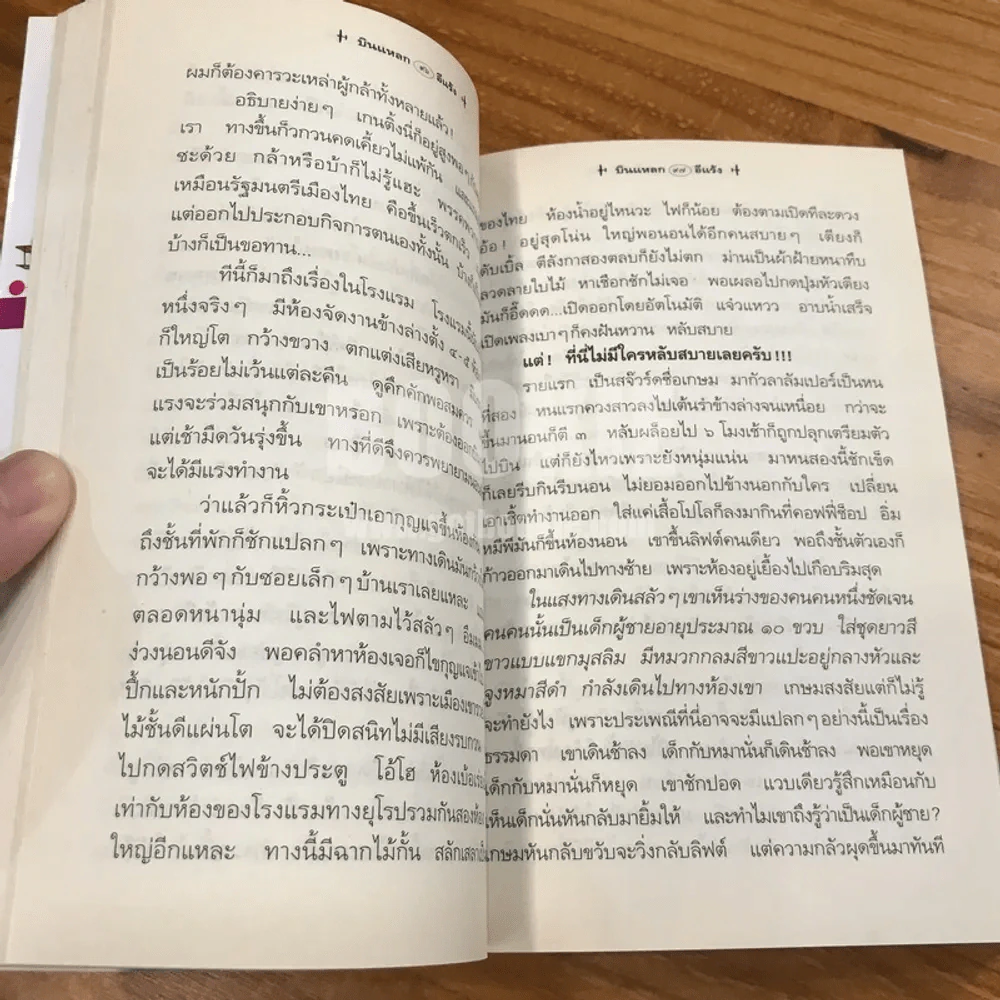 บินแหลก อีแร้ง
ผมก็ต้องคารวะเหล่าผู้กล้าทั้งหลายแล้ว!
อธิบายง่ายๆ เกนติ้งนี่ก็อยู่สูงพอๆ
เรา ทางขึ้นก็วกวนคดเคี้ยวไม่แพ้กัน
ซะด้วย กล้าหรือบ้าก็ไม่รู้แฮะ
เหมือนรัฐมนตรีเมืองไทย คือขึ้นเร็วตกเร็ว
แต่ออกไปประกอบกิจการตนเองทั้งนั้น
บ้างก็เป็นขอทาน...
ทีนี้ก็มาถึงเรื่องในโรงแรม
หนึ่งจริงๆ มีห้องจัดงานข้างล่างตั้ง ๔-๕
ก็ใหญ่โต กว้างขวาง ตกแต่งเสียหรูหรา
เป็นร้อยไม่เว้นแต่ละคืน ดูคึกคักพอสมควร
แรงจะร่วมสนุกกับเขาหรอก เพราะต้องออก
แต่เช้ามืดวันรุ่งขึ้น ทางที่ดีจึงควรพยายาม
จะได้มีแรงทำงาน
ว่าแล้วก็หิ้วกระเป๋าเอากุญแจขึ้นห้อง
ถึงชั้นที่พักก็ชักแปลกๆ เพราะทางเดินมัน
กว้างพอๆ กับซอยเล็กๆ บ้านเราเลยแหละ
ตลอดหนานุ่ม และไฟตามไว้สลัวๆ
ง่วงนอนดีจัง พอคลำหาห้องเจอก็ไขกุญแจ
ปึ้กและหนักปั้ก ไม่ต้องสงสัยเพราะเมืองเขา
ไม้ชั้นดีแผ่นโต จะได้ปิดสนิทไม่มีเสียงรบกวน
ไปกดสวิตช์ไฟข้างประตู โอ้โฮ ห้องเบ้อเร่อ
เท่ากับห้องของโรงแรมทางยุโรปรวมกันสองห้อง
ใหญ่อีกแหละ ทางนี้มีฉากไม้กั้น
บินแหลก ๙๗ อีแร้ง
ของไทย ห้องน้ำอยู่ไหนวะ ไฟก็น้อย ต้องตามเปิดทีละดวง
อ้อ! อยู่สุดโน่น ใหญ่พอนอนได้อีกคนสบายๆ เตียงก็
ดับเบิ้ล ตีลังกาสองตลบก็ยังไม่ตก ม่านเป็นผ้าฝ้ายหนาทึบ
ลวดลายใบไม้ หาเชือกชักไม่เจอ พอเผลอไปกดปุ่มหัวเตียง
มันก็อี๊ดดด...เปิดออกโดยอัตโนมัติ แจ๋วแหวว อาบน้ำเสร็จ
เปิดเพลงเบาๆ ก็คงฝันหวาน หลับสบาย
แต่! ที่นี่ไม่มีใครหลับสบายเลยครับ!!!
รายแรก เป็นสจ๊วร์ดชื่อเกษม มากัวลาลัมเปอร์เป็นหน
ที่สอง หนแรกควงสาวลงไปเต้นรำข้างล่างจนเหนื่อย กว่าจะ
ขึ้นมานอนก็ตี ๓ หลับผล็อยไป ๖ โมงเช้าก็ถูกปลุกเตรียมตัว
ไปบิน แต่ก็ยังไหวเพราะยังหนุ่มแน่น มาหนสองนี้ชักเข็ด
ก็เลยรีบกินรีบนอน ไม่ยอมออกไปข้างนอกกับใคร เปลี่ยน
เอาเชิ้ตทำงานออก ใส่แค่เสื้อโปโลก็ลงมากินที่คอฟฟี่ช็อป อิ่ม
หมีพีมันก็ขึ้นห้องนอน เขาขึ้นลิฟต์คนเดียว พอถึงชั้นตัวเองก็
ก้าวออกมาเดินไปทางซ้าย เพราะห้องอยู่เยื้องไปเกือบริมสุด
ในแสงทางเดินสลัวๆ เขาเห็นร่างของคนคนหนึ่งชัดเจน
คนคนนั้นเป็นเด็กผู้ชายอายุประมาณ ๑๐ ขวบ ใส่ชุดยาวสี
ขาวแบบแขกมุสลิม มีหมวกกลมสีขาวแปะอยู่กลางหัวและ
จูงหมาสีดำ กำลังเดินไปทางห้องเขา เกษมสงสัยแต่ก็ไม่รู้
จะทำยังไง เพราะประเพณีที่นี่อาจจะมีแปลกๆ อย่างนี้เป็นเรื่อง
ธรรมดา เขาเดินช้าลง เด็กกับหมานั่นก็เดินช้าลง พอเขาหยุด
เด็กกับหมานั่นก็หยุด เขาชักปอด แวบเดียวรู้สึกเหมือนกับ
เห็นเด็กนั่นหันกลับมายิ้มให้ และทำไมเขาถึงรู้ว่าเป็นเด็กผู้ชาย?
เกษมหันกลับขวับจะวิ่งกลับลิฟต์ แต่ความกลัวผุดขึ้นมาทันที